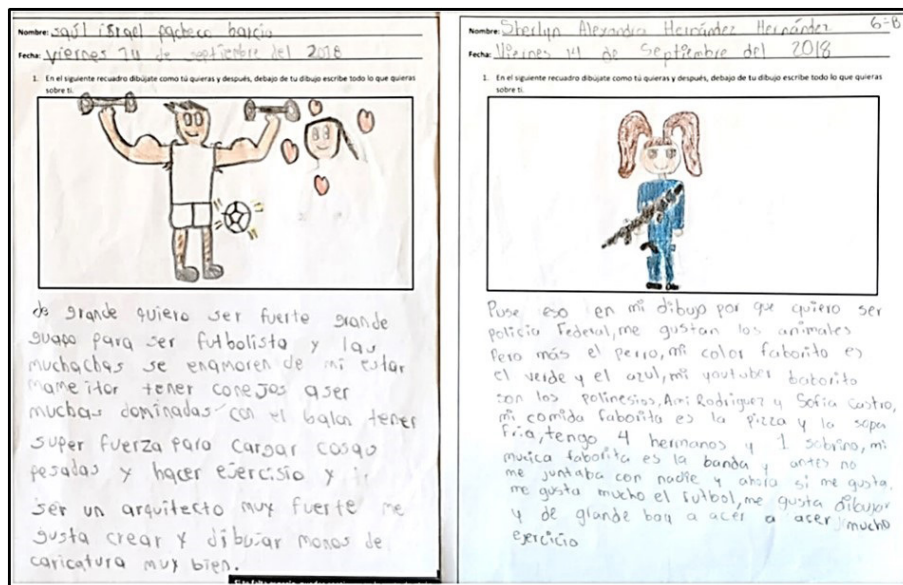 Nombre: saúl israel pacheco garcia
Fecha: viernes 14 de septiembre del 2018
1. En el siguiente recuadro dibújate como tú quieras y después, debajo de tu dibujo escribe todo lo que quieras
sobre ti.
de grande quiero ser fuerte grande
guapo para ser futbolista y las
muchachas se enamoren de mi estar
mame itor tener conejos aser
muchas dominadas con el balon tener
super fuerza para cargar cosas
pesadas y hacer ejercisio y ir
ser un arquitecto muy fuerte me
gusta crear y dibujar monos de
caricatura muy bien.
Nombre: Sherlyn Alexandra Hernández Hernández 6=B
Fecha: Viernes 14 de Septiembre del 2018
1. En el siguiente recuadro dibújate como tú quieras y después, debajo de tu dibujo escribe todo lo que quieras
sobre ti.
Puse eso en mi dibujo por que quiero ser
policia Federal, me gustan los animales
Pero más el perro, mi color faborito es
el verde y el azul, mi youtuber baborito
son los polinesios, Ami Rodriguez y Sofia Castro,
mi comida faborita es la pizza y la sopa
fria, tengo 4 hermanos y 1 sobrino, mi
musica faborita es la banda y antes no
me juntaba con nadie y ahora si me gusta.
me gusta mucho el futbol, me gusta dibujar
y de glande boy a acer a aser mucho
ejercicio